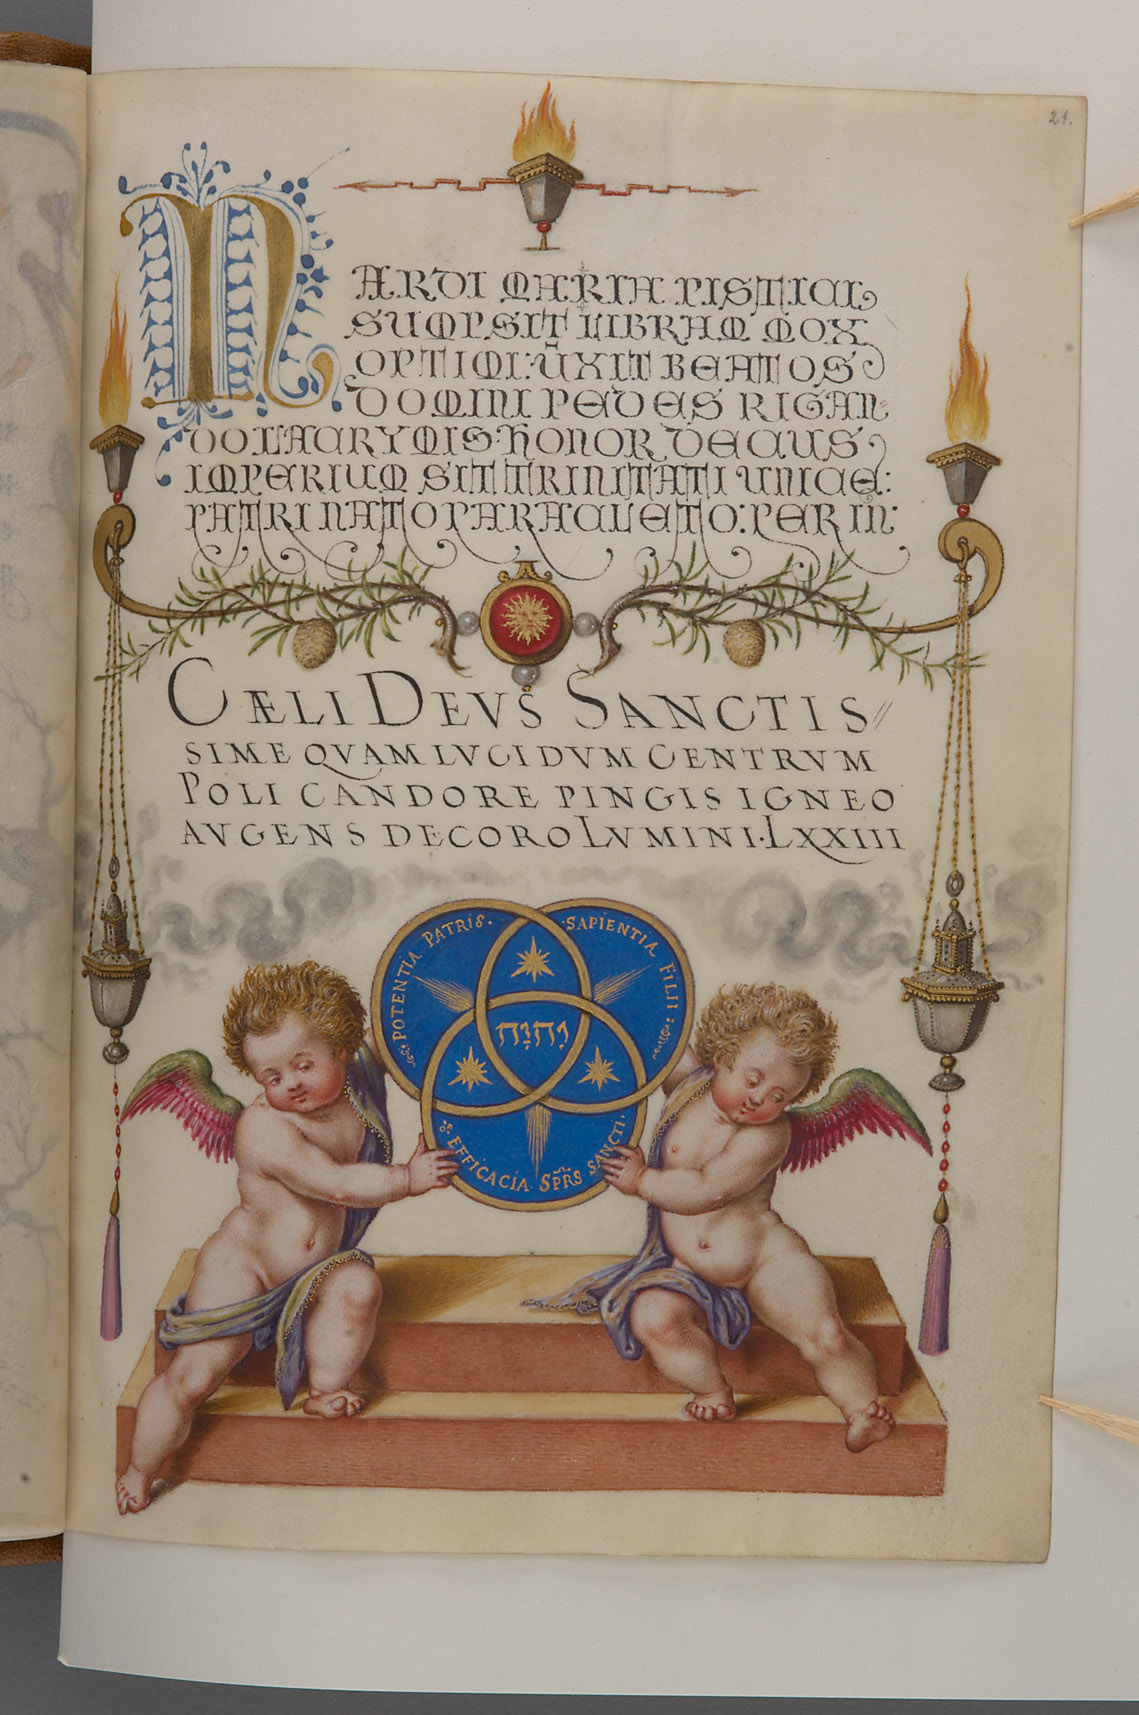 21.
NARDI MARIA PISTICI
SUMPSIT LIBRAM MOX
OPTIMI: ŪXIT BEATOS
DOMINI PEDES RIGAN=
DO LACRYMIS: HONOR DECUS
IMPERIUM SIT TRINITATI UNICE:
PATRI NATO PARACLETO: PER IN:
CÆLI DEVS SANCTIS//
SIME QVAM LVCIDVM CENTRVM
POLI CANDORE PINGIS IGNEO
AVGENS DECORO LVMINI·LXXIII
POTENTIA PATRIS·
·SAPIENTIA FILII
יְהֹוָה
EFFICACIA SP̃RS SANCTI·